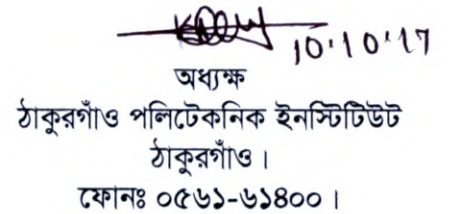 10.10.17
অধ্যক্ষ
ঠাকুরগাঁও পলিটেকনিক ইনস্টিটিউট
ঠাকুরগাঁও।
ফোনঃ ০৫৬১-৬১৪০০।